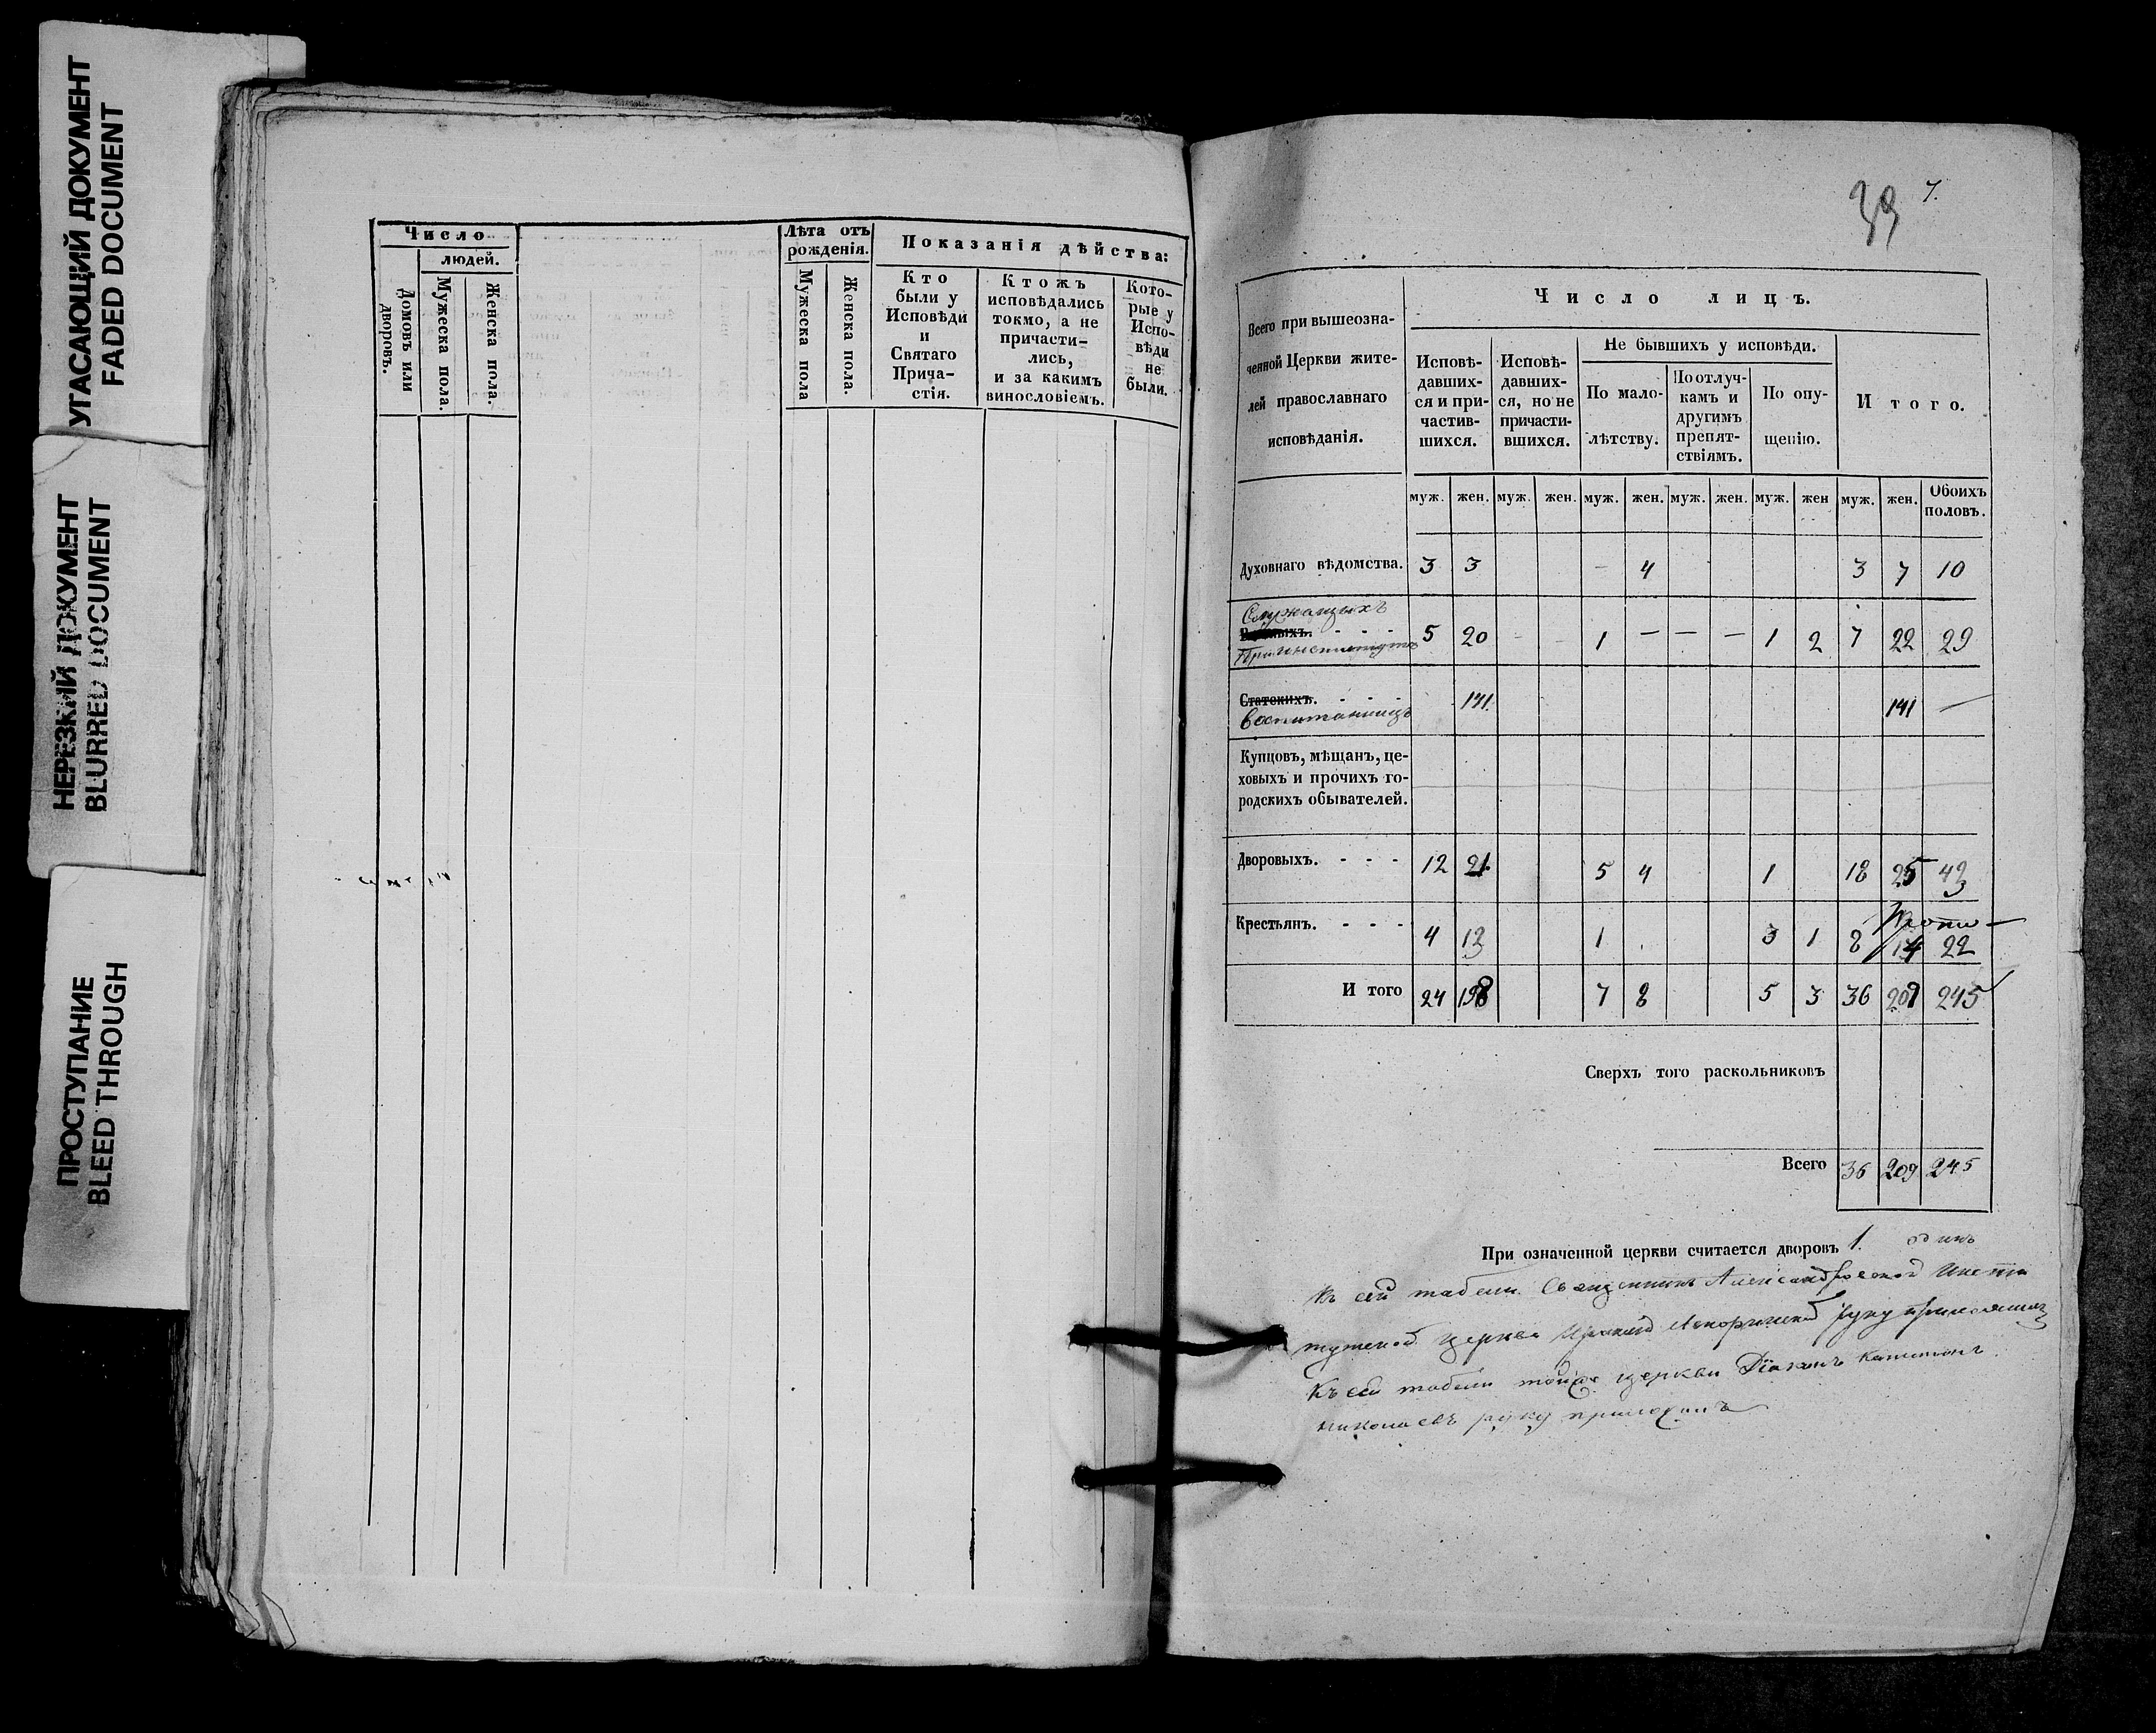 УГАСАЮЩИЙ ДОКУМЕНТ
FADED DOCUMENT
НЕРЕЗКИЙ ДОКУМЕНТ
BLURRED DOCUMENT
ПРОСТУПАНИЕ
BLEED THROUGH
Число
людей.
Домовъ или дворовъ.
Мужеска пола.
Женска пола.
Лѣта отъ рожденія.
Мужеска пола
Женска пола.
Показанія дѣйства:
Кто
были у
Исповѣди
и
Святаго
Прича-
стія.
Ктожъ
исповѣдались
токмо, а не
причасти-
лись,
и за какимъ
винословіемъ.
Кото-
рые у
Испо-
вѣди
не
были.
39 7.
Всего при вышеозна-
ченной Церкви жите-
лей православнаго
исповѣданія.
Число лицъ.
Исповѣ-
давших-
ся и при-
частив-
шихся.
Исповѣ-
давших-
ся, но не
причасти-
вшихся.
Не бывшихъ у исповѣди.
По мало-
лѣтству.
По отлуч-
камъ и
другимъ
препят-
ствіямъ.
По опу-
щенію.
Итого.
муж. жен. муж. жен. муж. жен. муж. жен. муж. жен муж. жен. Обоихъ половъ.
Духовнаго вѣдомства. 3 3 - 4 3 7 10
Служащихъ
При институтѣ 5 20 - - 1 - - - 1 2 7 22 29
Статскихъ.
воспитанницъ 141 141 -
Купцовъ, мѣщанъ, це-
ховыхъ и прочихъ го-
родскихъ обывателей.
Дворовыхъ. - - - 12 21 5 4 1 18 25 43
Крестьянъ. - - - 4 13 1 3 1 8 14 22
Итого 24 198 7 8 5 3 36 209 245
Сверхъ того раскольниковъ
Всего 36 209 245
При означенной церкви считается дворовъ 1. одинъ
Къ сей табели Священникъ Александровской Инсти
тутской церкви руку приложилъ
Къ сей табели тойже церкви Діаконъ Капитонъ
Николаевъ руку приложилъ